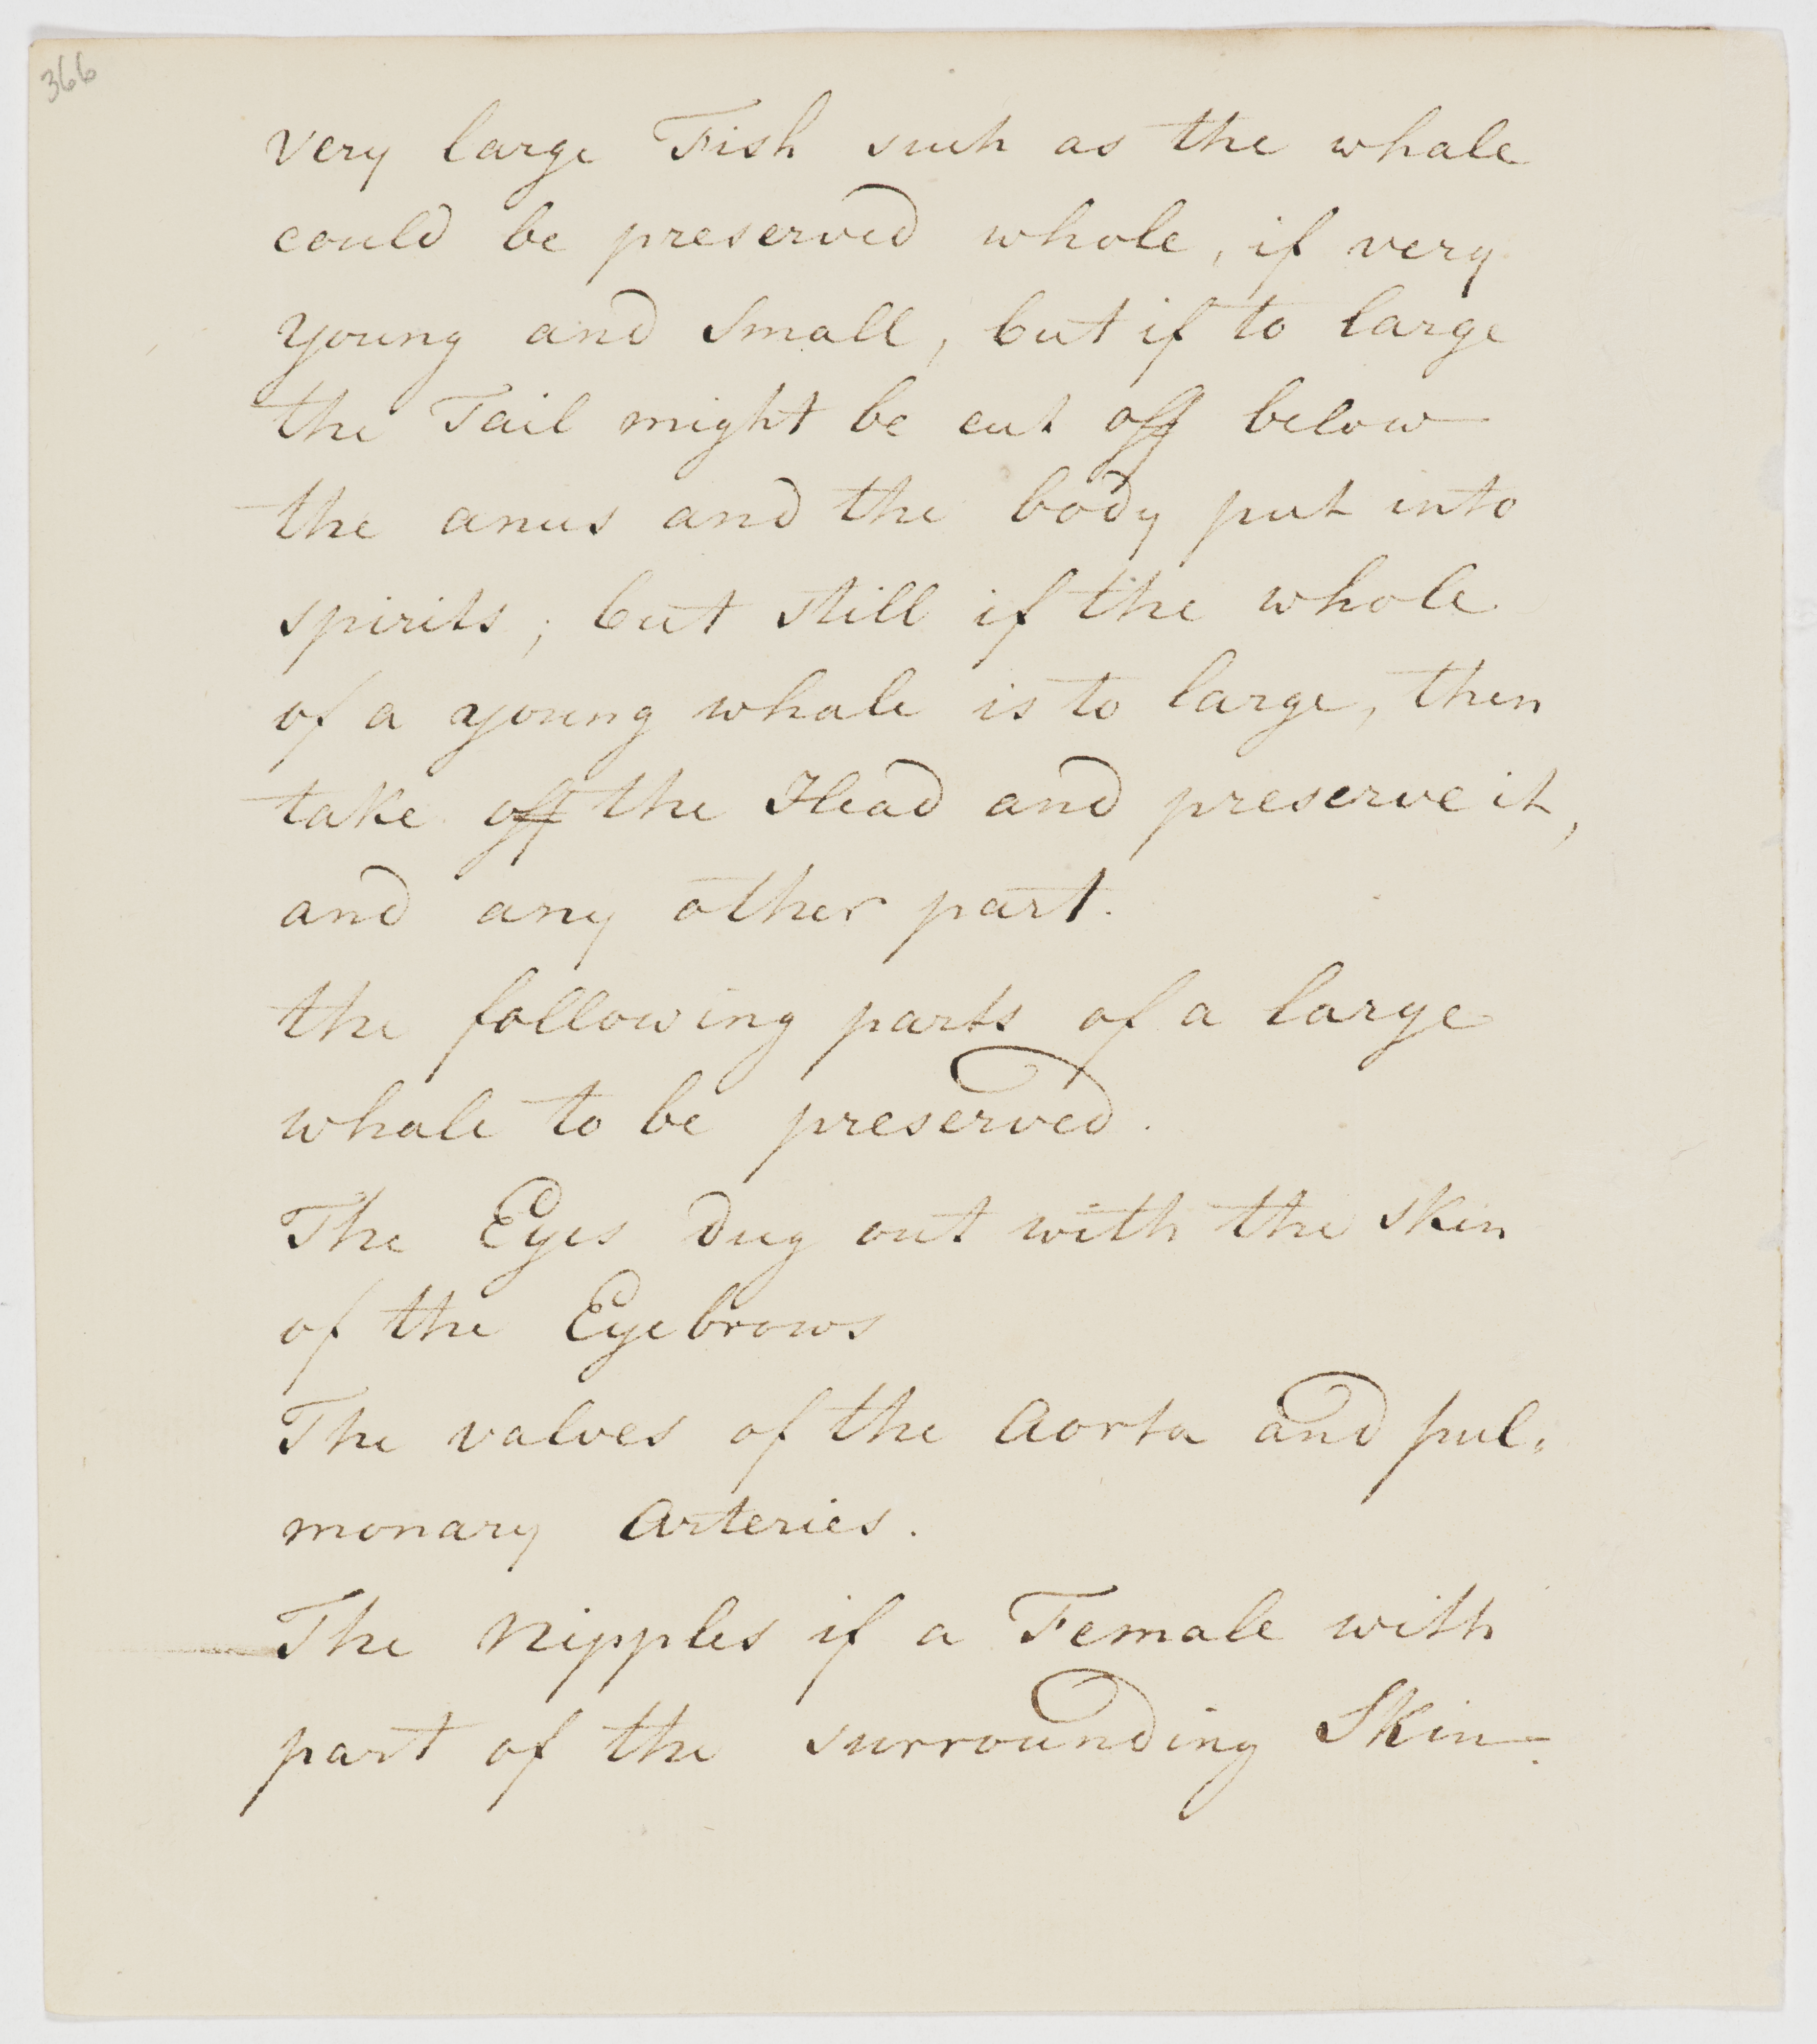 366
very large Fish such as the whale
could be preserved whole, if very
young and small, but if to large
the Tail might be cut off below
the anus and the body put into
spirits; but still if the whole
of a young whale is to large, then
take off the Head and preserve it,
and any other part.
the following parts of a large
whale to be preserved.
The Eyes dug out with the skin
of the Eyebrows
The valves of the Aorta and pul-
monary Arteries.
The Nipples if a Female with
part of the surrounding Skin.